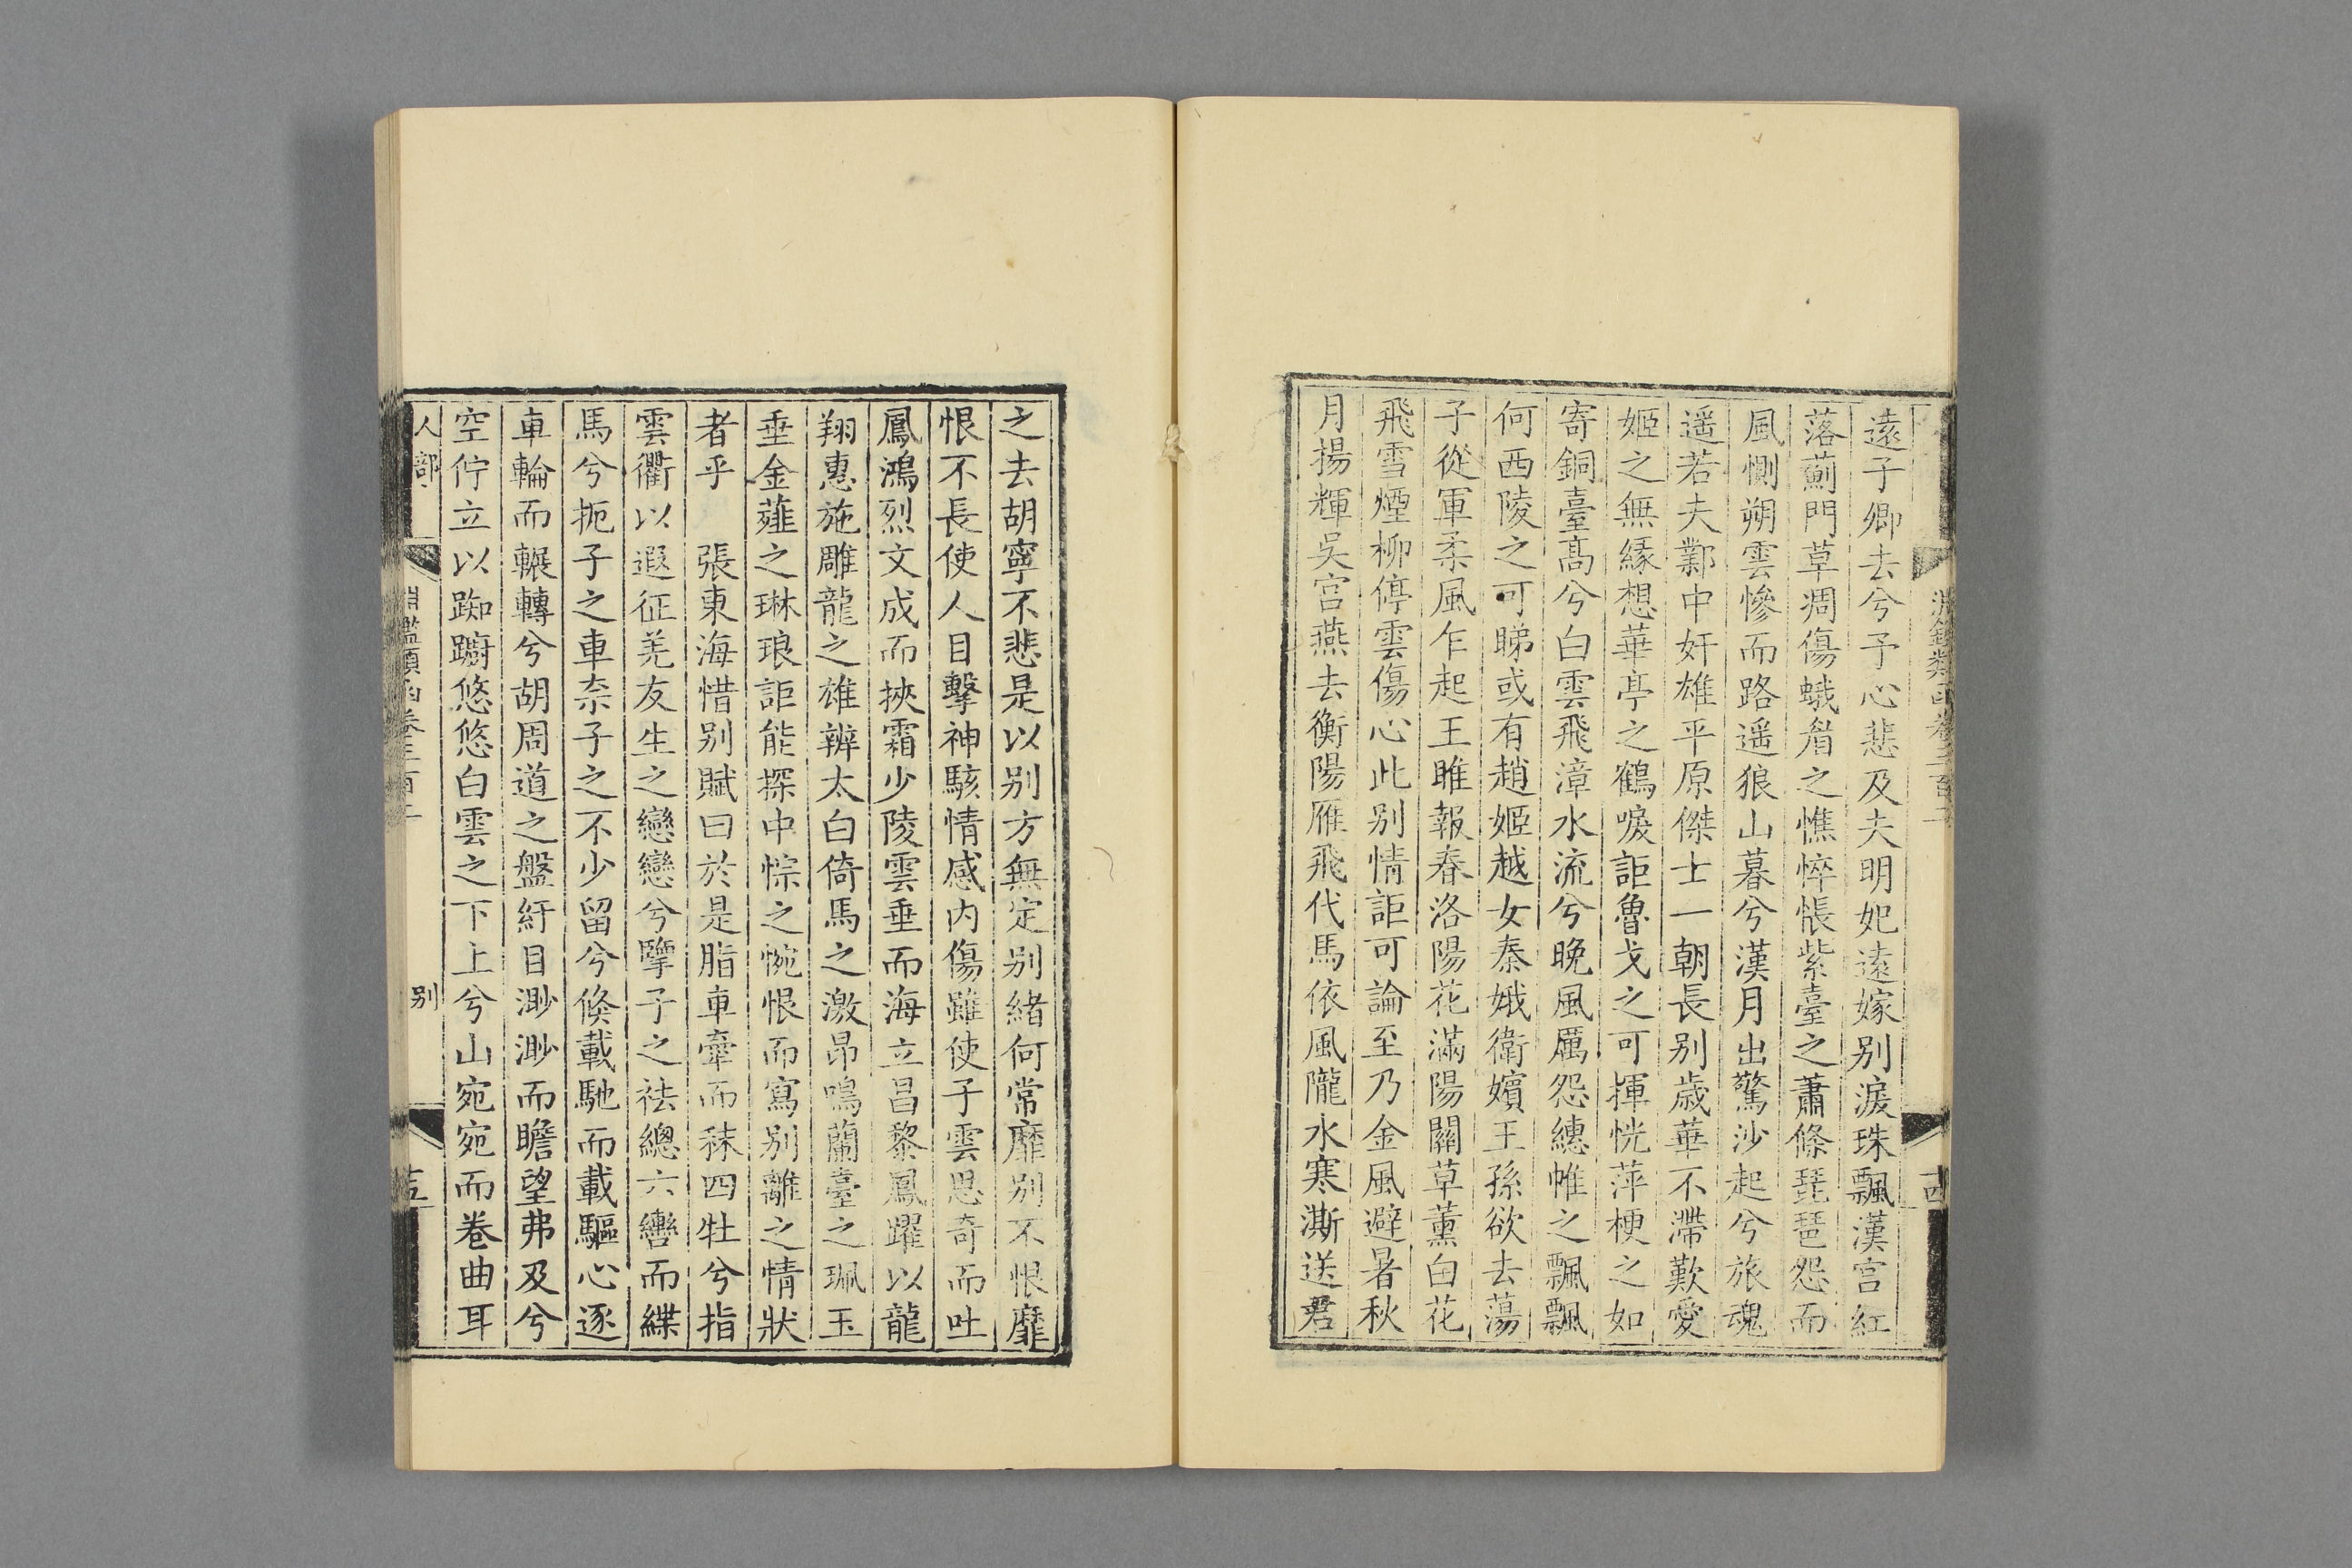 遠子卿去兮予心悲及夫明妃遠嫁别淚珠飄漢宫紅
落薊門草凋傷蛾眉之憔悴悵紫臺之蕭條琵琶怨而
風惻朔雲慘而路遥狼山暮兮漢月出驚沙起兮旅魂
遥若夫鄴中奸雄平原傑士一朝長别歲華不滯歎愛
姬之無緣想華亭之鶴唳詎魯戈之可揮恍萍梗之如
寄銅臺髙兮白雲飛漳水流兮晚風厲怨繐帷之飄飄
何西陵之可睇或有趙姬越女秦娥衛嬪王孫欲去蕩
子從軍柔風乍起王雎報春洛陽花滿陽關草薰白花
飛雪煙柳停雲傷心此别情詎可論至乃金風避暑秋
月揚輝吳宫燕去衡陽雁飛代馬依風隴水寒澌送君
之去胡寧不悲是以别方無定别緒何常靡别不恨靡
恨不長使人目擊神駭情感内傷雖使子雲思奇而吐
鳳鴻烈文成而挾霜少陵雲垂而海立昌黎鳳躍以龍
翔惠施雕龍之雄辨太白倚馬之激昂鳴蘭臺之珮玉
垂金薤之琳琅詎能探中悰之惋恨而寫别離之情狀
者乎　張東海惜别賦曰於是脂車牽而秣四牡兮指
雲衢以遐征羌友生之戀戀兮擥子之袪總六轡而緤
馬兮扼子之車柰子之不少留兮倏載馳而載驅心逐
車輪而輾轉兮胡周道之盤紆目渺渺而瞻望弗及兮
空佇立以踟躕悠悠白雲之下上兮山宛宛而卷曲耳
人部
淵鑑類函卷三百二
别